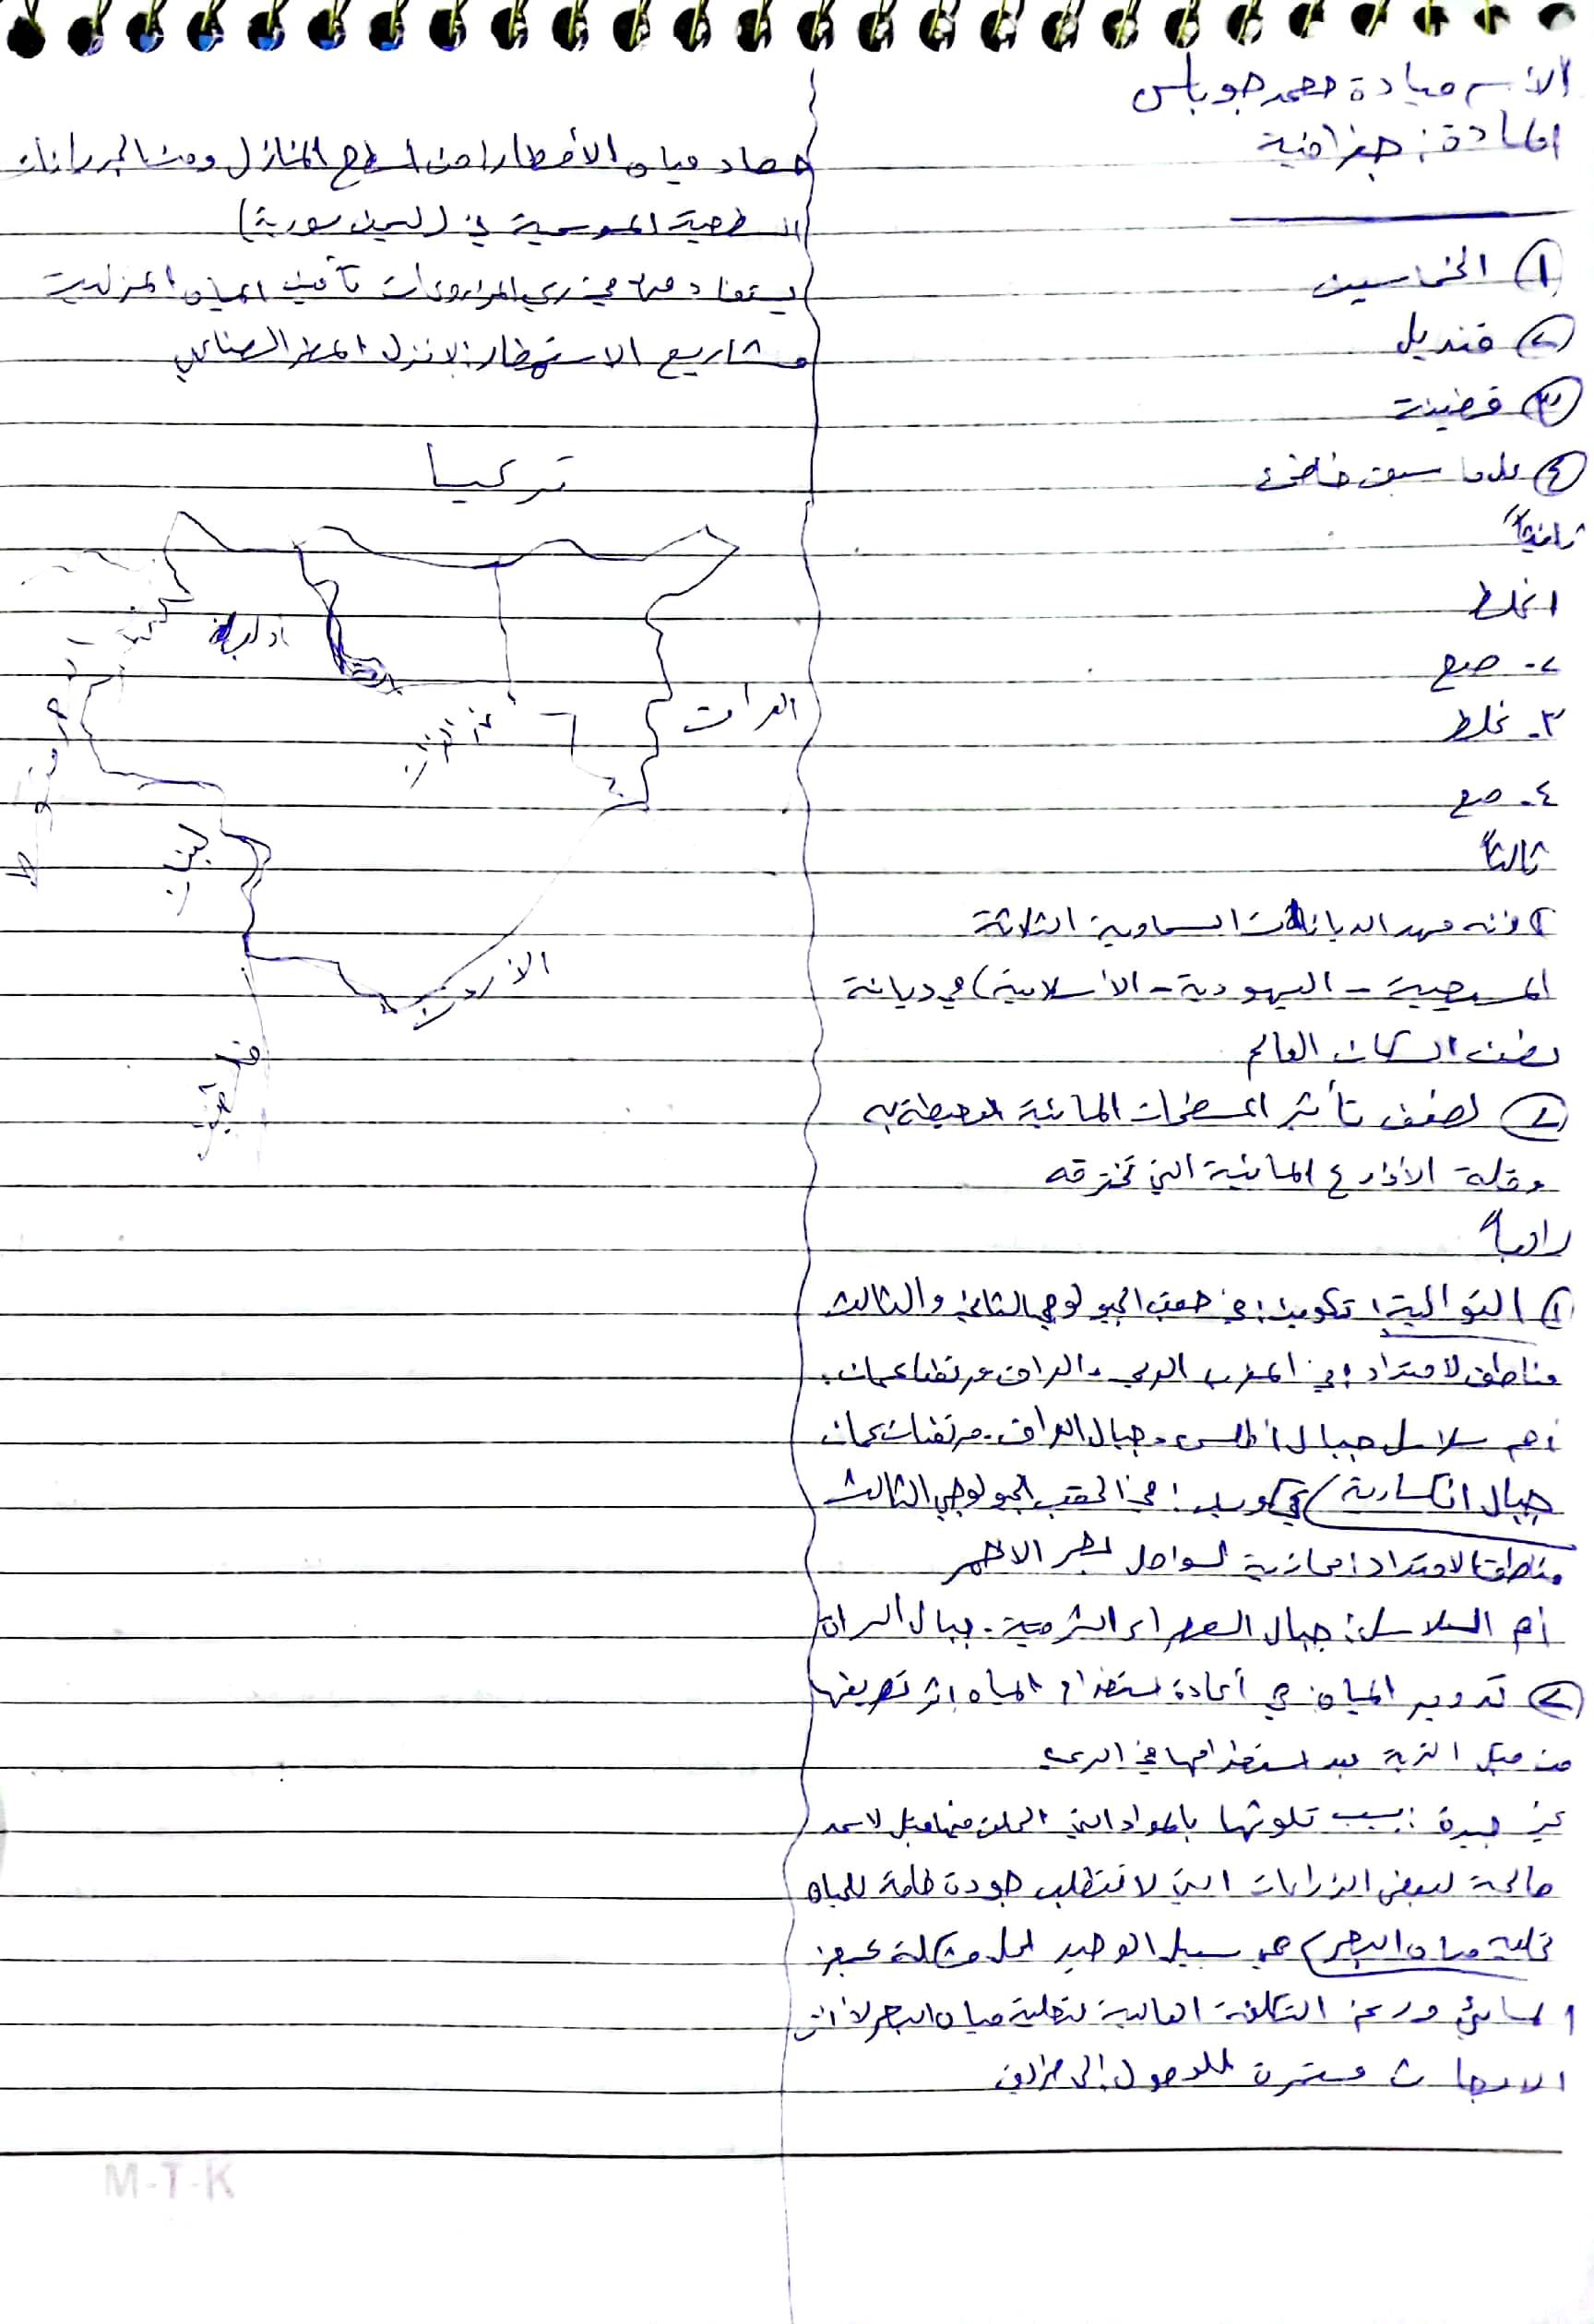 الاسم ميادة محمد جوباس
المادة: جغرافية
① الخماسين
② قنديل
③ قطينة
④ كل ما سبق خاطئ
ثانياً
١ غلط
٢- صح
٣- غلط
٤- صح
ثالثاً
١ لأنه مهد الديانات السماوية الثلاثة
المسيحية - اليهودية - الأسلامية) هي ديانة
نصف السكان العالم
② لضعف تأثير المسطحات المائية المحيطة به
وقلة الأذارع المائية التي تخترقه
رابعاً
① التوائية: تكوينه: في حقب الجيولوجي الثاني والثالث
مناطق لامتداد: في المغرب العربي والعراق مرتفعا عمان.
أهم سلاسل جبال أطلس. جبال العراق. مرتفعات عمان
جبال انكسارية) تكوينه: في الحقب الجيولوجي الثالث
مناطق الامتداد: موازية لسواحل بحر الاحمر
أهم السلاسل: جبال الصحراء الشرقية. جبال السراة
② تدوير المياه: هي أعادة ستخدام المياه إثر تصريفها
من قبل التربة بعد استخدامها في الري
غير جيدة: بسبب تلوثها بالمواد التي
صالحة لبعض الزراعات التي لا تتطلب جودة للمياه
تحلية مياه البحر) هي سبيل الوحيد لحل مشكلة عجز
المائي ورغم التكلفة العالية لتحلية مياه البحر لا أن
الابحاث مستمرة للوصول إلى
حصاد مياه الأمطار: من اسطح المنازل ومن الجريانات
السطحية الموسمية في (اليمن سورية)
يستفاد منها في ري المزروعات تأمين المياه المنزلية
مشاريع الاستمطار: لانزل المطر الصناعي
تركيا
ادلب
العراق
لبنان
الأردن
فلسطين
M-T-K